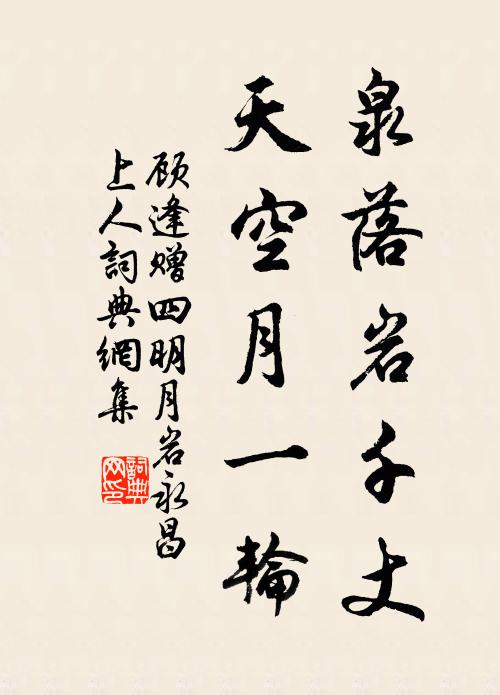 泉落岩千丈
天空月一輪
顾逢赠四明月岩永昌
上人詞典網集
詞典
网印